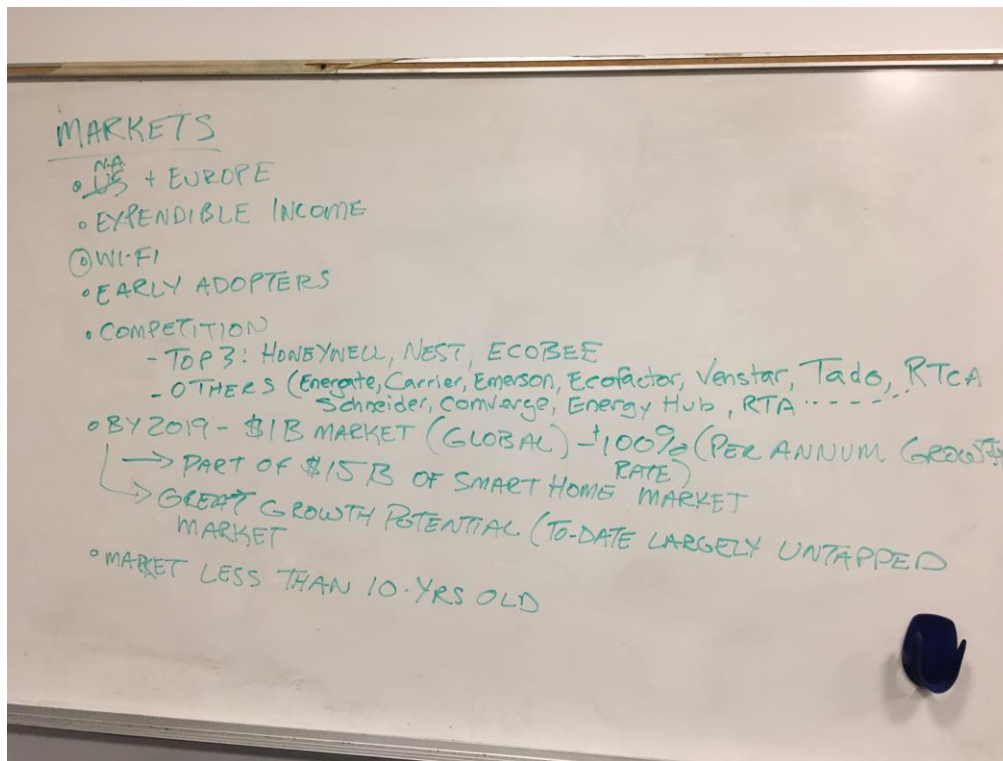 MARKETS
N.A.
• US + EUROPE
• EXPENDIBLE INCOME
• WI-FI
• EARLY ADOPTERS
• COMPETITION
- TOP 3: HONEYWELL, NEST, ECOBEE
- OTHERS (Energate, Carrier, Emerson, Ecofactor, Venstar, Tado, RTCA
Schneider, Comverge, Energy Hub, RTA ------
• BY 2019 - $1B MARKET (GLOBAL) - ±100% (PER ANNUM GROWTH
RATE)
→ PART OF $15B OF SMART HOME MARKET
→ GREAT GROWTH POTENTIAL (TO-DATE LARGELY UNTAPPED
MARKET
• MARKET LESS THAN 10-YRS OLD